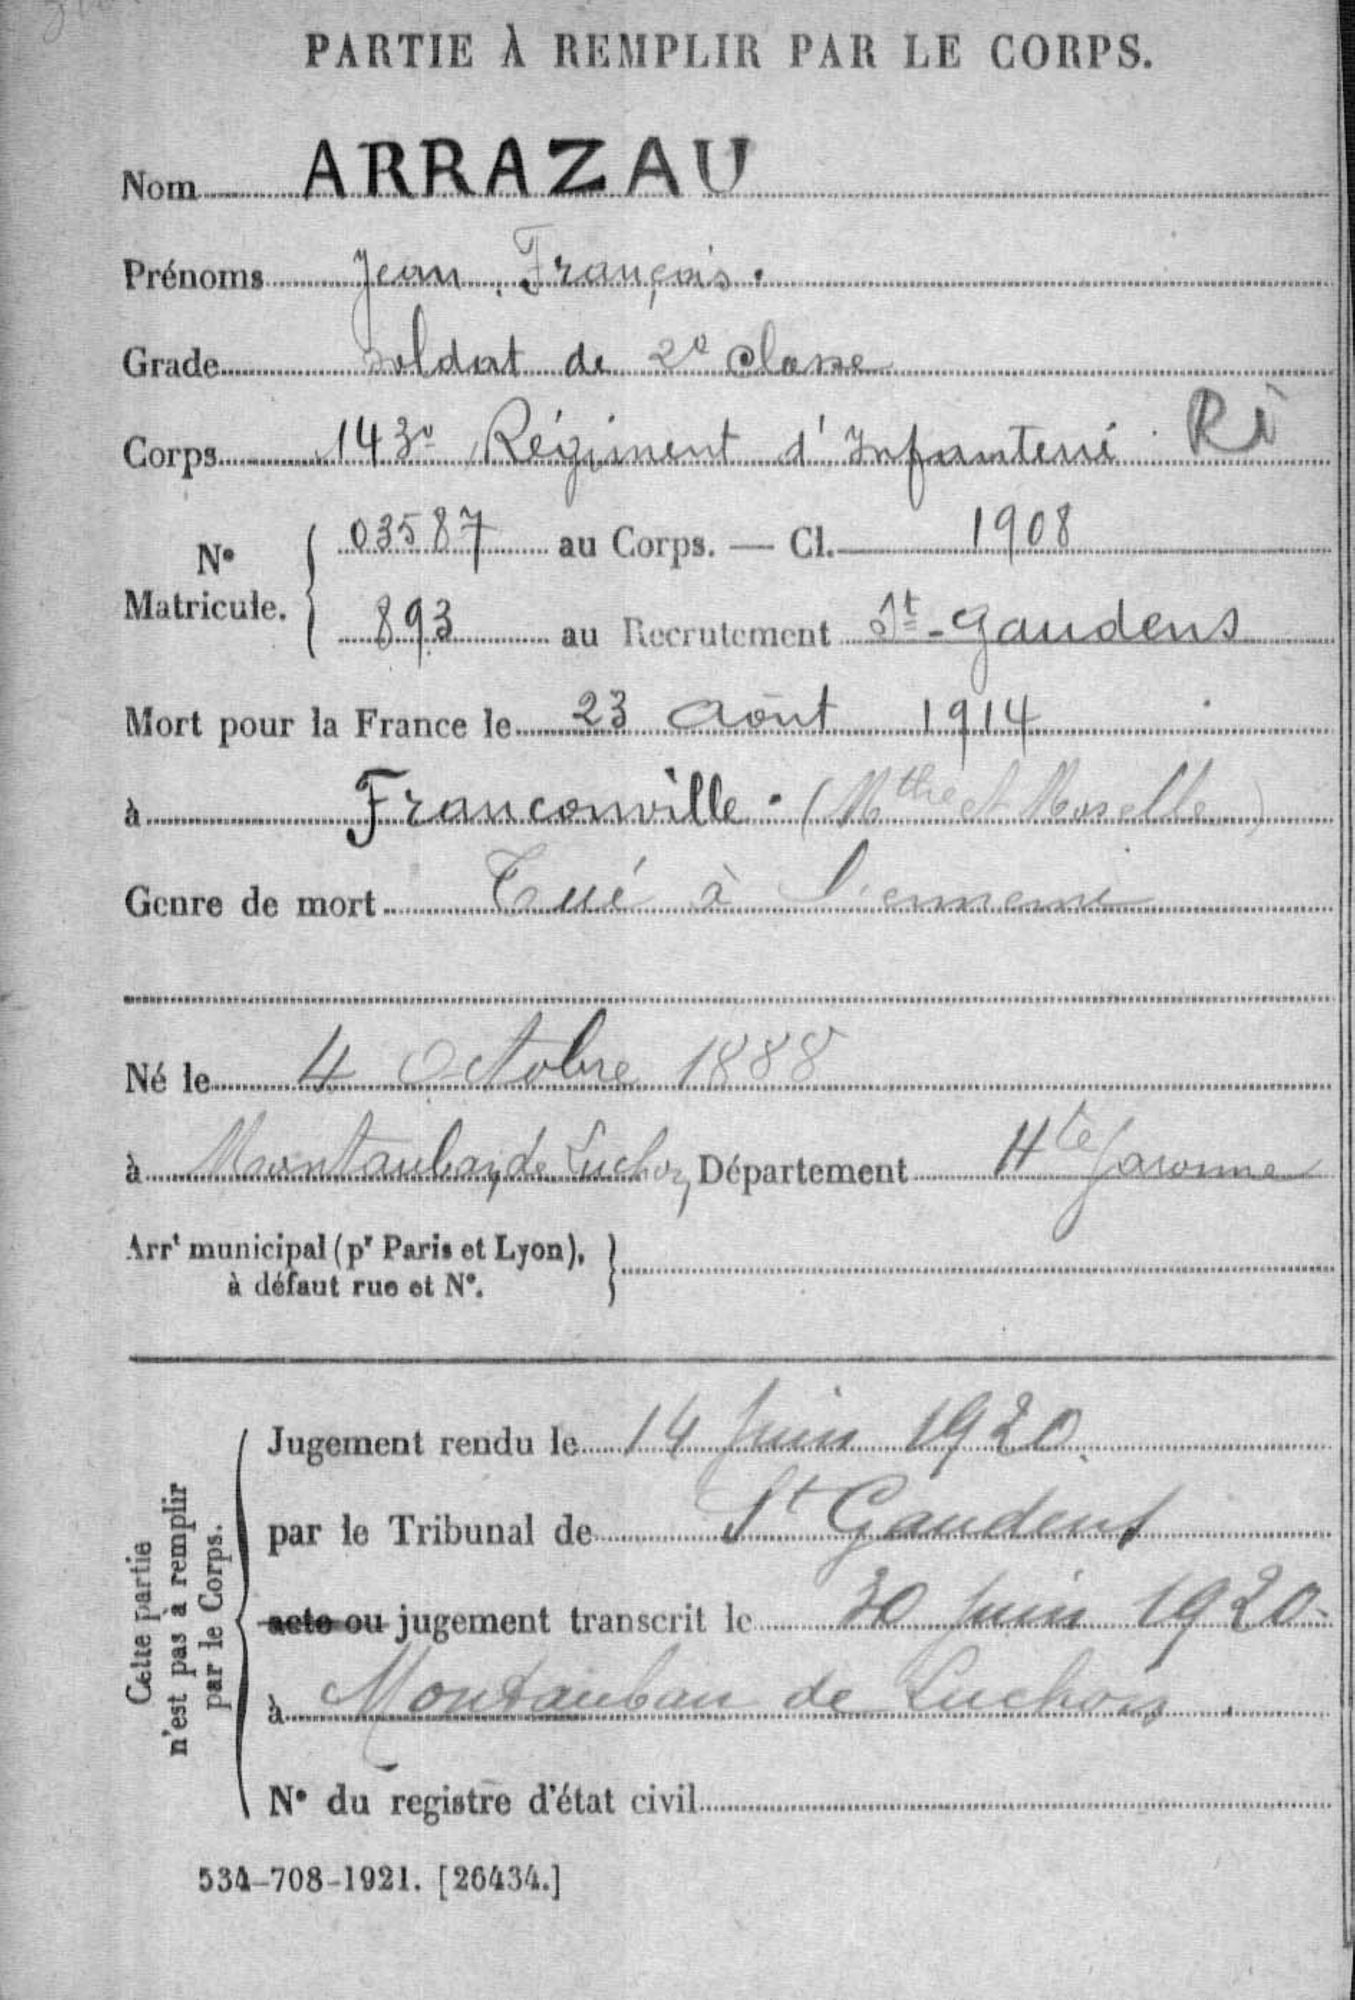 PARTIE À REMPLIR PAR LE CORPS.
Nom ARRAZAU
Prénoms Jean. François.
Grade soldat de 2e classe
Corps 143e Régiment d'Infanterie RI
N° Matricule. { 03587 au Corps. — Cl. 1908
893 au Recrutement St-Gaudens
Mort pour la France le 23 Août 1914
à Franconville. (Mthe et Moselle)
Genre de mort Tué à l'ennemi
Né le 4 Octobre 1888
à Montauban de Luchon Département Hte Garonne
Arrt municipal (pr Paris et Lyon), }
à défaut rue et N°.
Cette partie
n'est pas à remplir
par le Corps.
Jugement rendu le 14 Juin 1920.
par le Tribunal de St Gaudens
acte ou jugement transcrit le 30 Juin 1920.
à Montauban de Luchon.
N° du registre d'état civil
534-708-1921. [26434.]